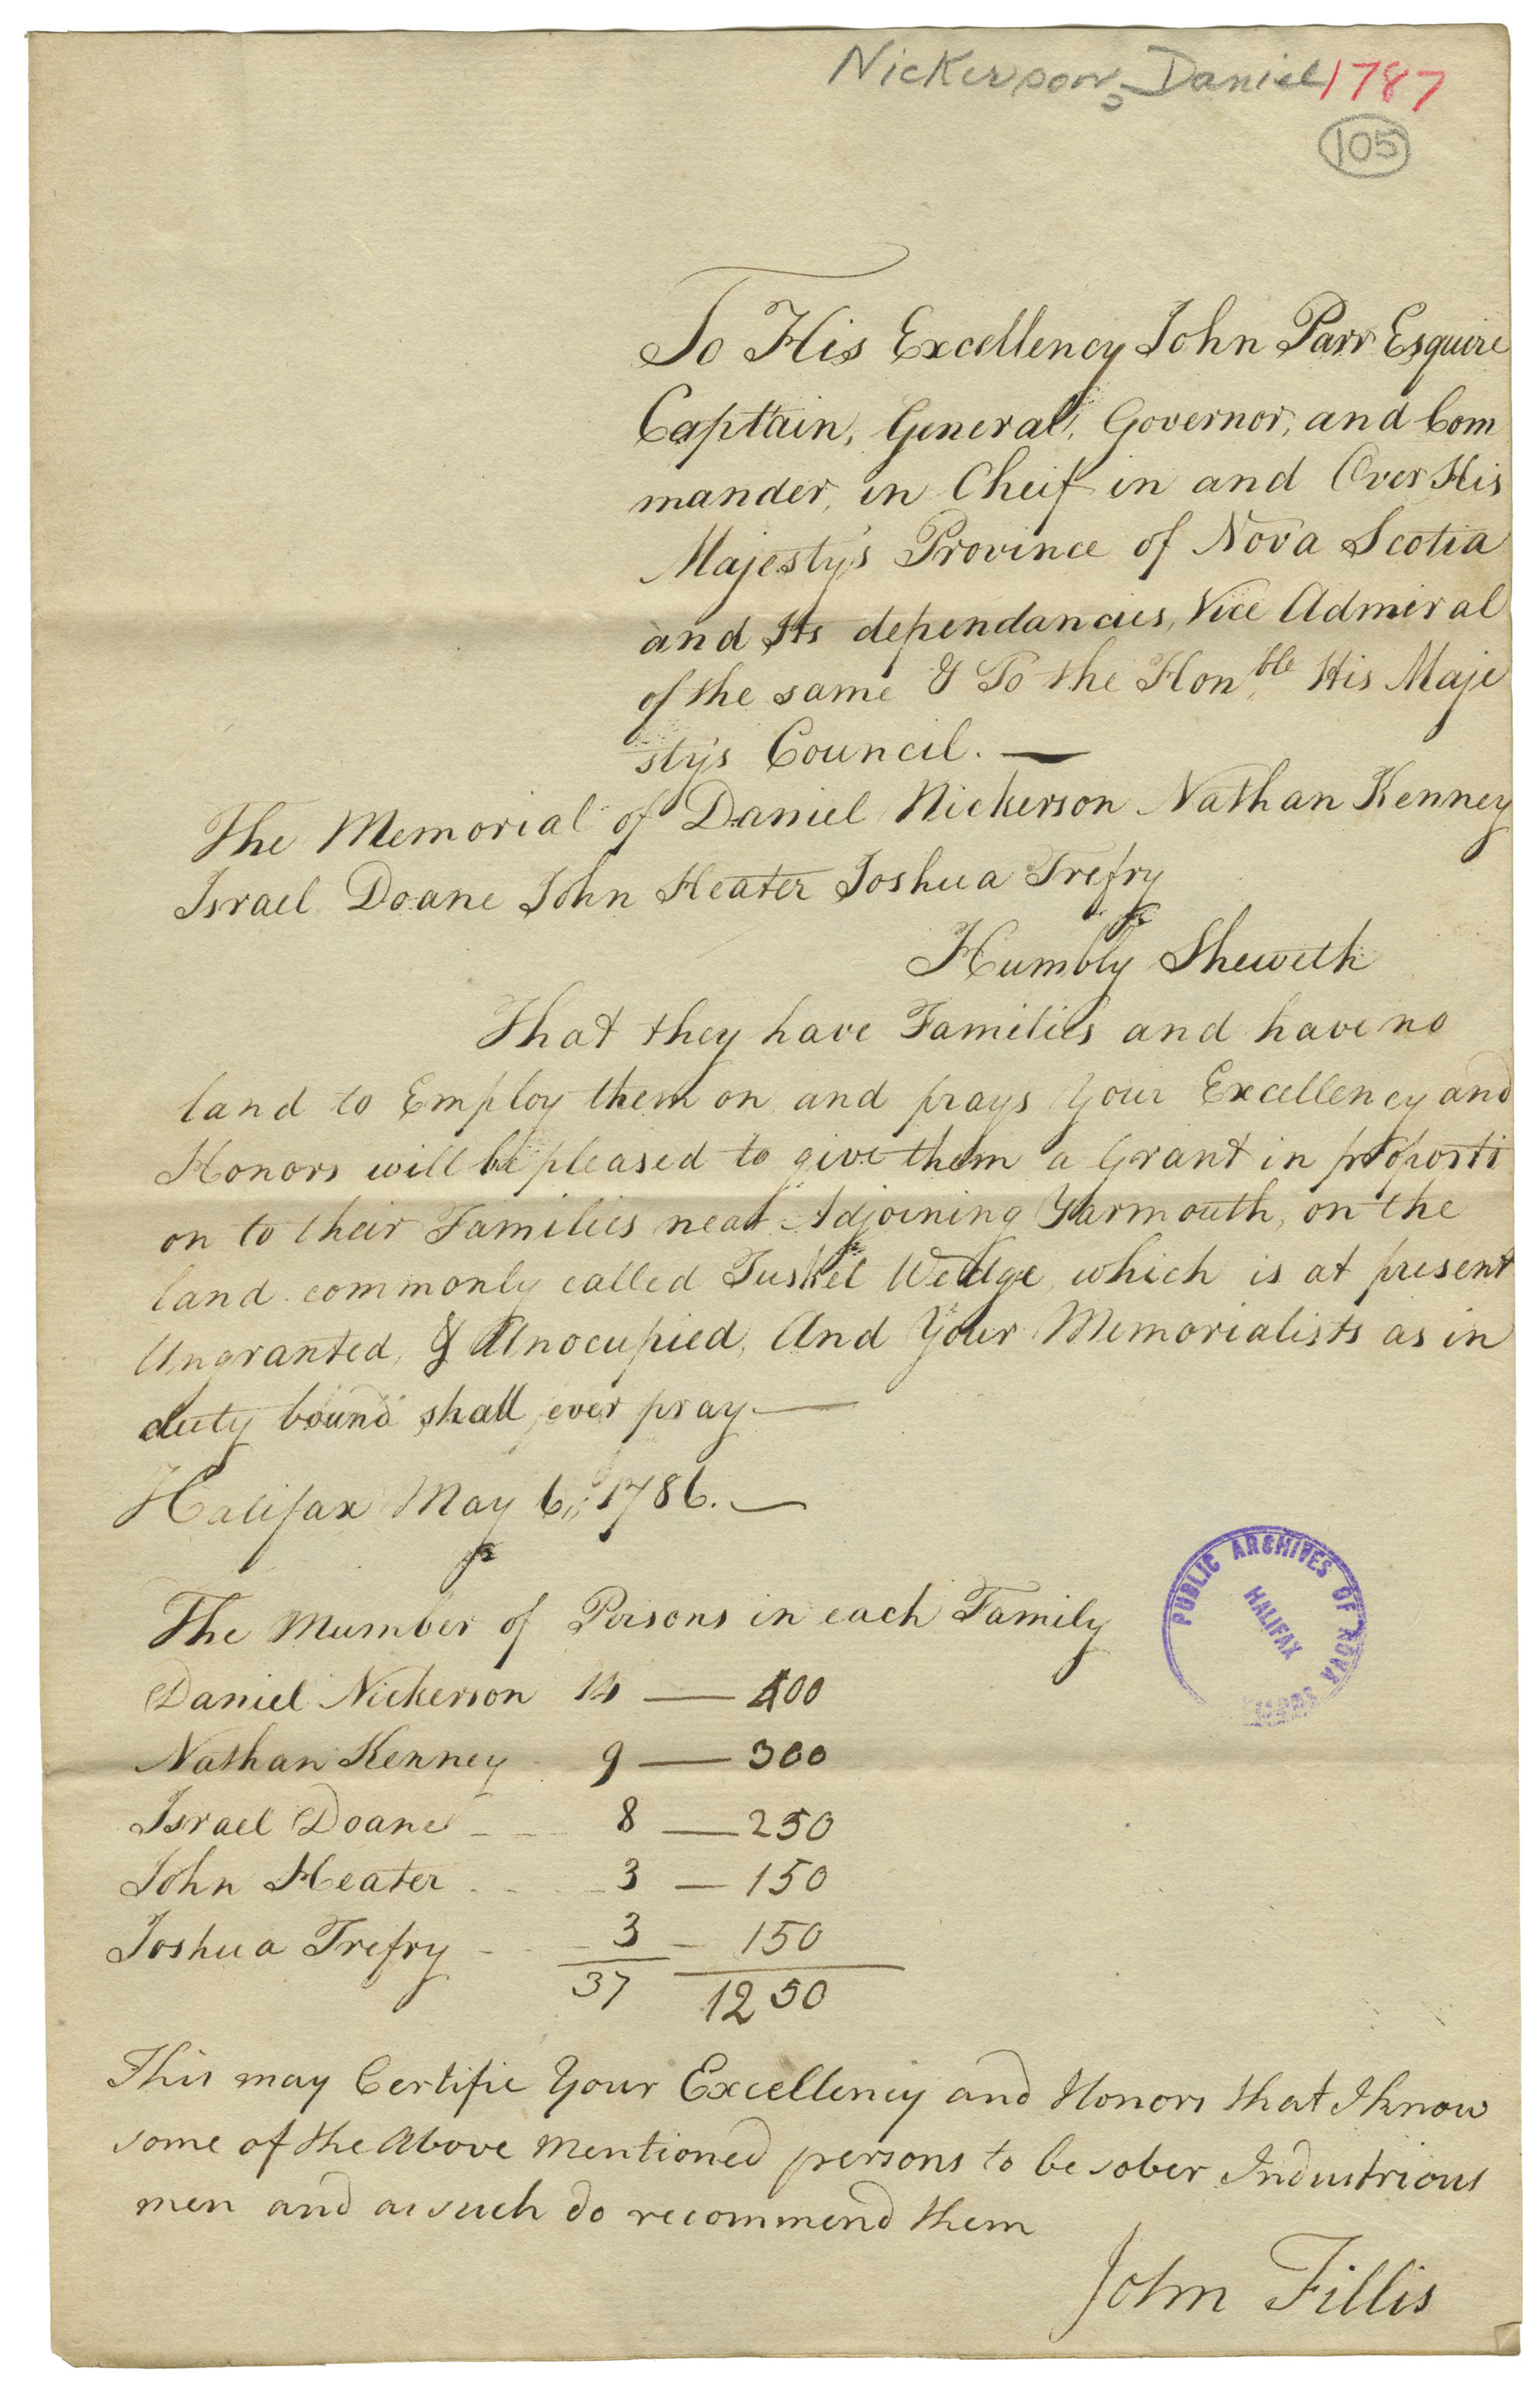 Nickerson, Daniel 1787
105
To His Excellency John Parr Esquire
Captain, General, Governor, and Com
mander, in Cheif in and Over His
Majesty's Province of Nova Scotia
and Its dependancies, Vice Admiral
of the same & To the Honble His Maje
sty's Council. —
The Memorial of Daniel Nickerson Nathan Kenney
Israel Doane John Heater Joshua Trefry
Humbly Sheweth
That they have Families and have no
land to Employ them on and prays Your Excellency and
Honors will be pleased to give them a Grant in proporti
on to their Families near Adjoining Yarmouth, on the
land commonly called Tusket Wedge, which is at present
Ungranted, & Unocupied, And Your Memorialists as in
duty bound shall ever pray —
Halifax May 6, 1786. —
The Mumber of Persons in each Family
Daniel Nickerson 14 — 400
Nathan Kenney 9 — 300
Israel Doane 8 — 250
John Heater 3 — 150
Joshua Trefry 3 — 150
37 1250
PUBLIC ARCHIVES OF NOVA SCOTIA
HALIFAX
This may Certifie Your Excellency and Honors that I know
some of the Above mentioned persons to be sober Industrious
men and as such do recommend them
John Fillis